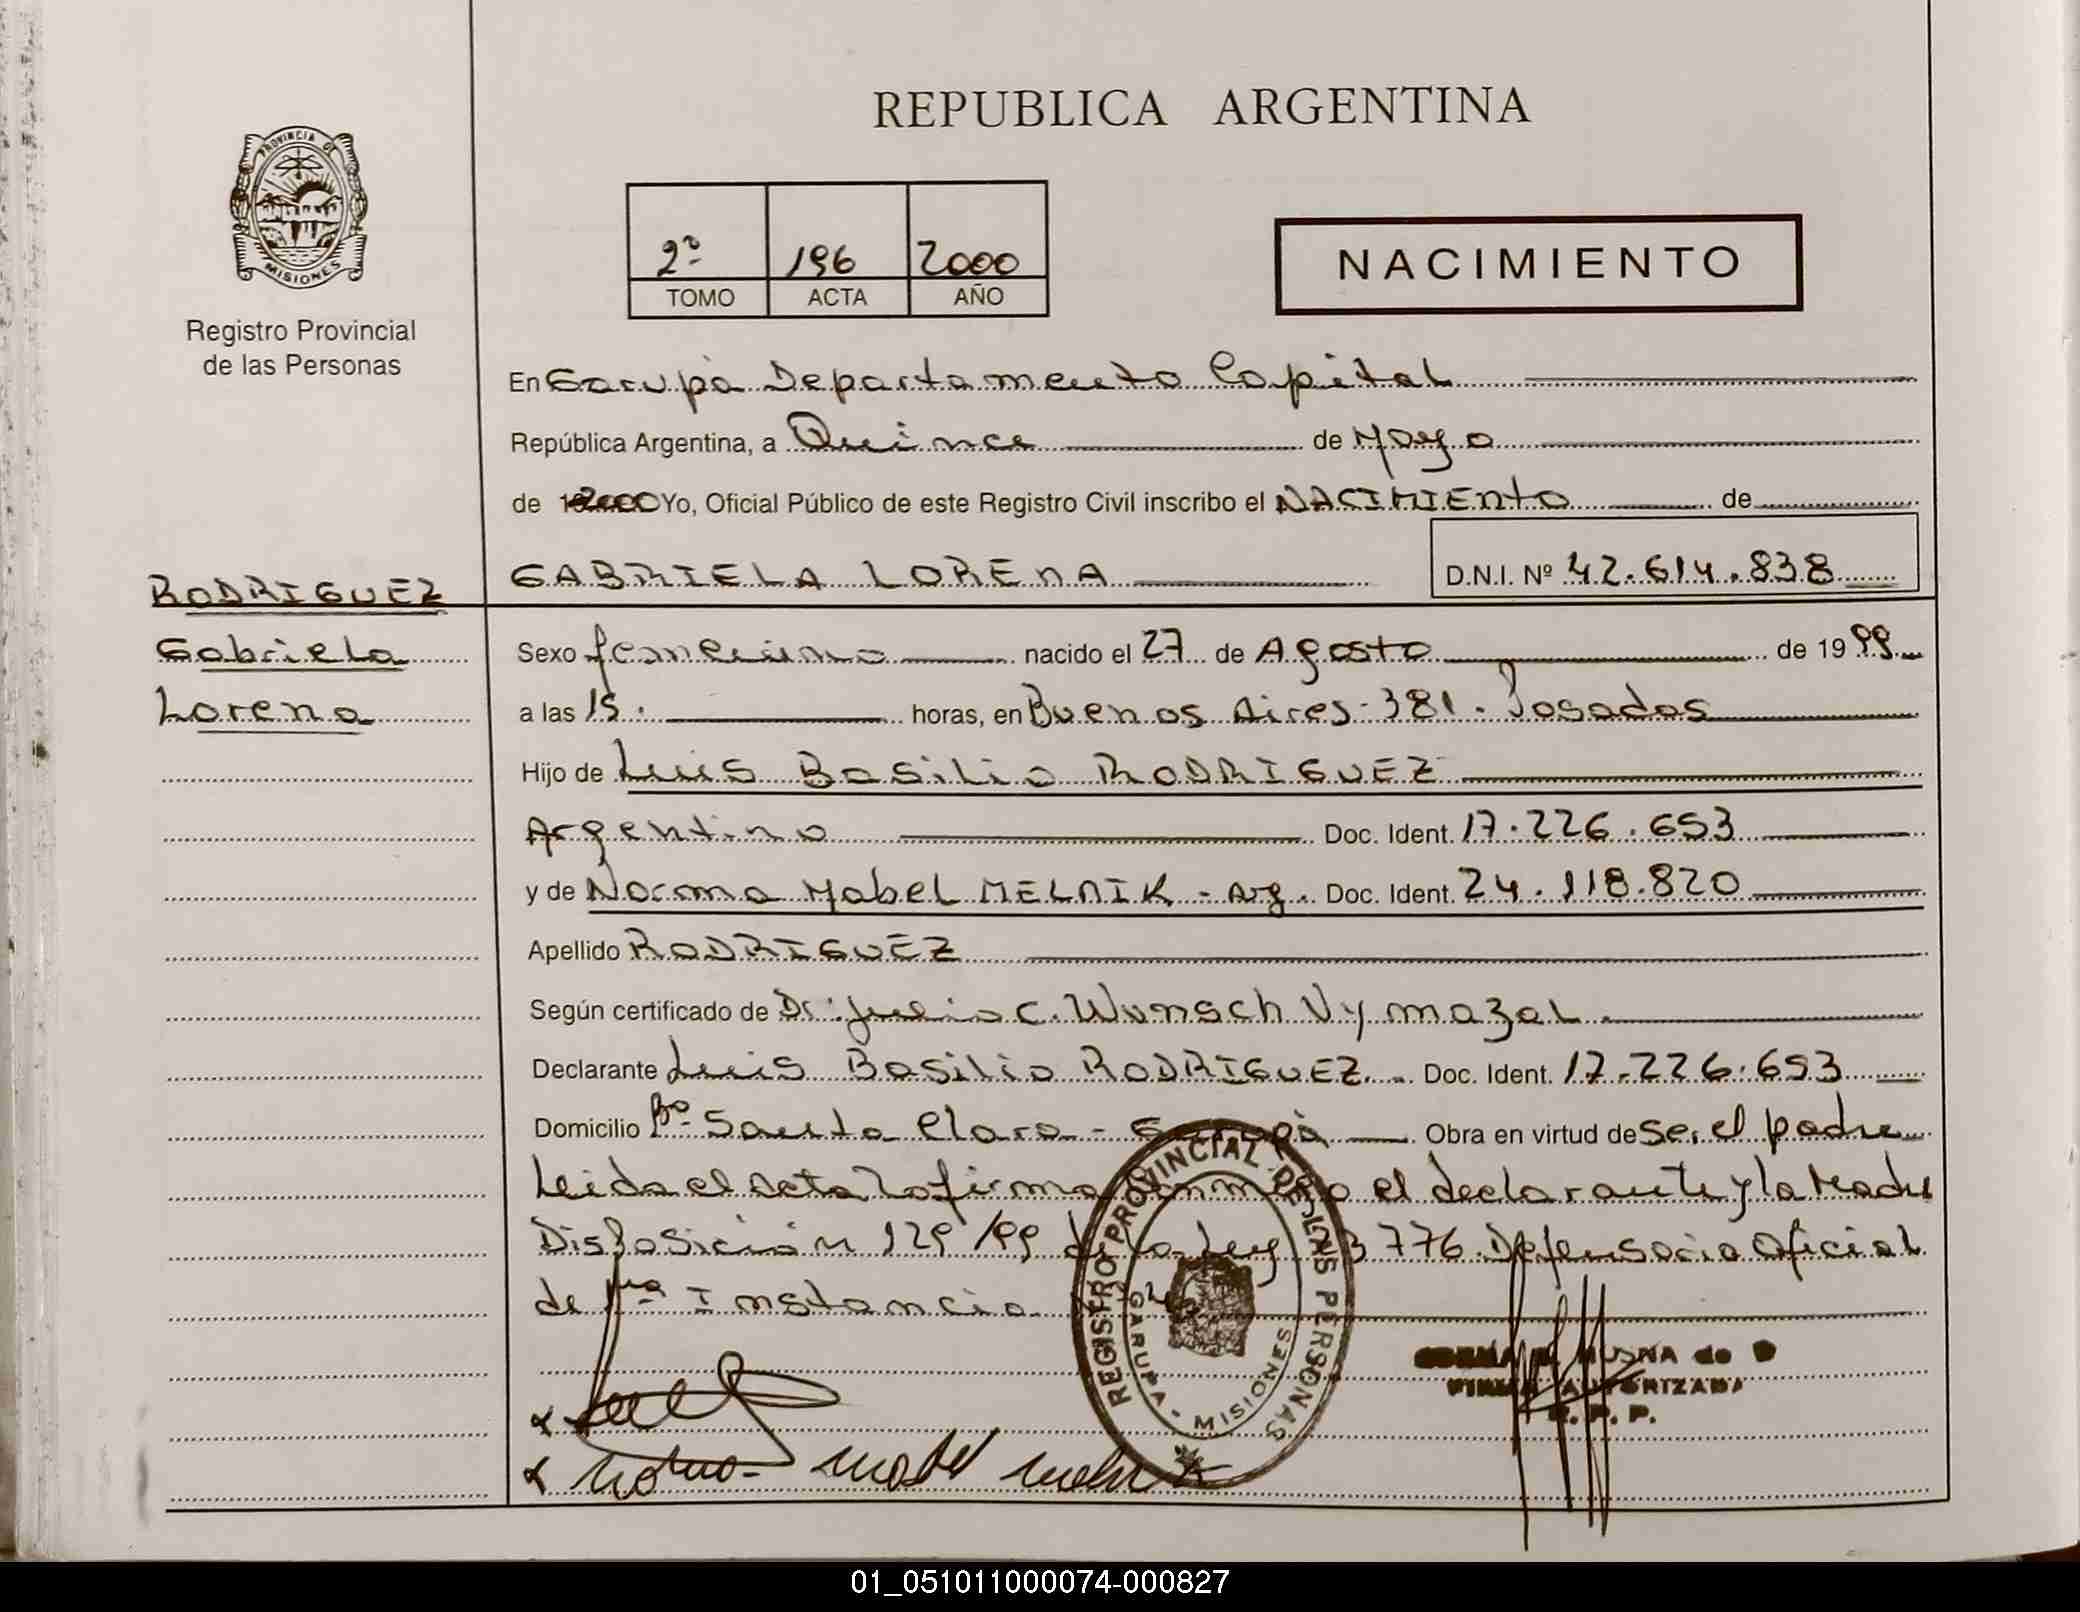 REPUBLICA ARGENTINA
PROVINCIA DE
MISIONES
Registro Provincial
de las Personas
2º 196 2000
TOMO ACTA AÑO
NACIMIENTO
En Garupà Departamento Capital
República Argentina, a Quince de Mayo
de 2000 Yo, Oficial Público de este Registro Civil inscribo el NACIMIENTO de
GABRIELA LORENA D.N.I. Nº 42.614.838
RODRIGUEZ
Gabriela
Lorena
Sexo femenino nacido el 27 de Agosto de 1999
a las 15. horas, en Buenos Aires-381. Posadas
Hijo de Luis Basilio RODRIGUEZ
Argentino Doc. Ident. 17.226.653
y de Norma Mabel MELNIK - Arg. Doc. Ident. 24.118.820
Apellido RODRIGUEZ
Según certificado de Dr. Julio C. Wunsch Vymazal
Declarante Luis Basilio RODRIGUEZ. Doc. Ident. 17.226.653
Domicilio Bº Santa Clara - Garupà Obra en virtud de ser el padre
Leida el acta la firma conmigo el declarante y la Madre
Disposición 129/99 de la Ley 23776 Defensoria Oficial
de 1ra Instancia
REGISTRO PROVINCIAL DE LAS PERSONAS
GARUPA - MISIONES
MUSNA de D
FIRMA AUTORIZADA
R. P. P.
Norma Mabel Melnik
01_051011000074-000827